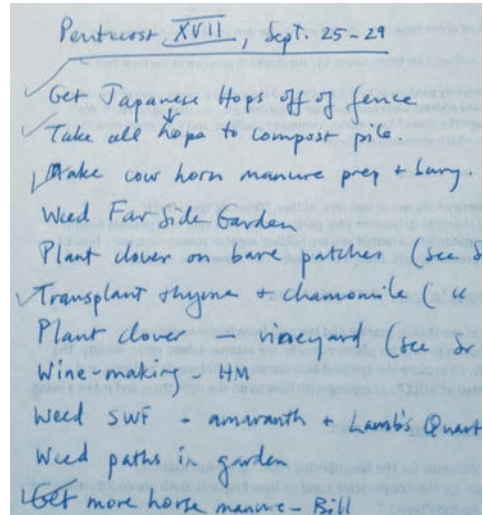 Pentecost XVII, Sept. 25-29
Get Japanese Hops off of fence
Take all hops to compost pile.
Make cow horn manure prep + bury.
Weed Far Side Garden
Plant clover on bare patches (see S
Transplant thyme + chamomile ( "
Plant clover - vineyard (see Sr
Wine-making - HM
Weed SWF - amaranth + Lamb's Quart
Weed paths in garden
Get more horse manure - Bill